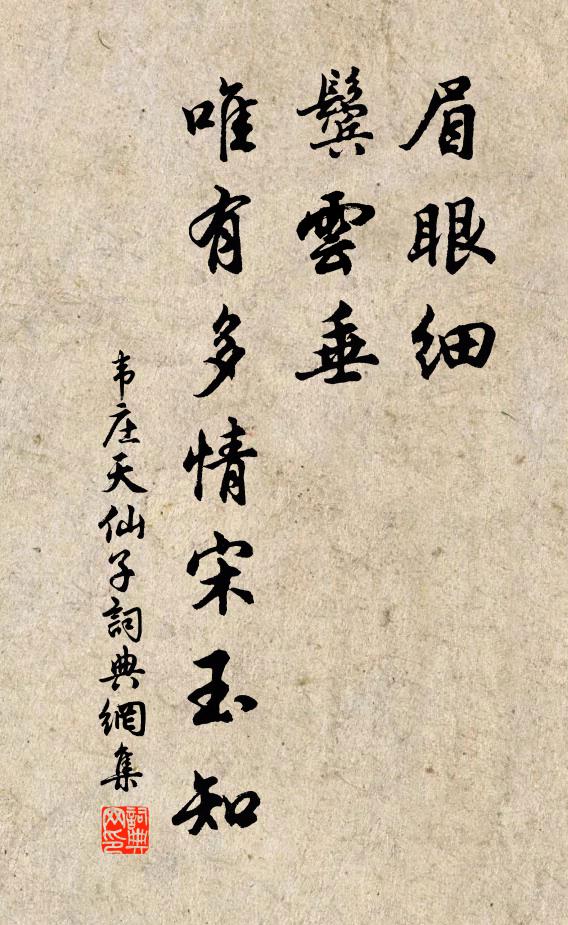 眉眼细
鬓雲垂
唯有多情宋玉知
韦庄天仙子詞典網集
詞典网印